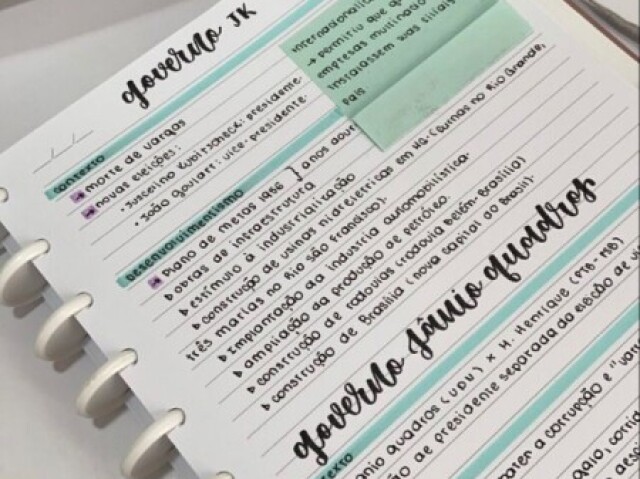 governo JK
contexto
→ morte de vargas
→ novas eleições:
· Juscelino Kubitscheck: presidente
· João Goulart: vice-presidente
internacionaliz
→ permitiu que
empresas multinacio
instalassem suas filiais
país
Desenvolvimentismo
→ Plano de metas 1956 } anos dour
obras de infraestrutura
estímulo à industrialização
construção de usinas hidrelétricas em MG (Furnas no Rio Grande,
três marias no Rio São Francisco).
Implantação da indústria automobilística.
ampliação da produção de petróleo.
construção de rodovias (rodovia Belém-Brasília)
construção de Brasília (nova capital do Brasil).
governo Jânio quadros
texto
ânio quadros (UDN) x H. Henrique (PTB-
ão de presidente separada da eleição de v
bater a corrupção e "var